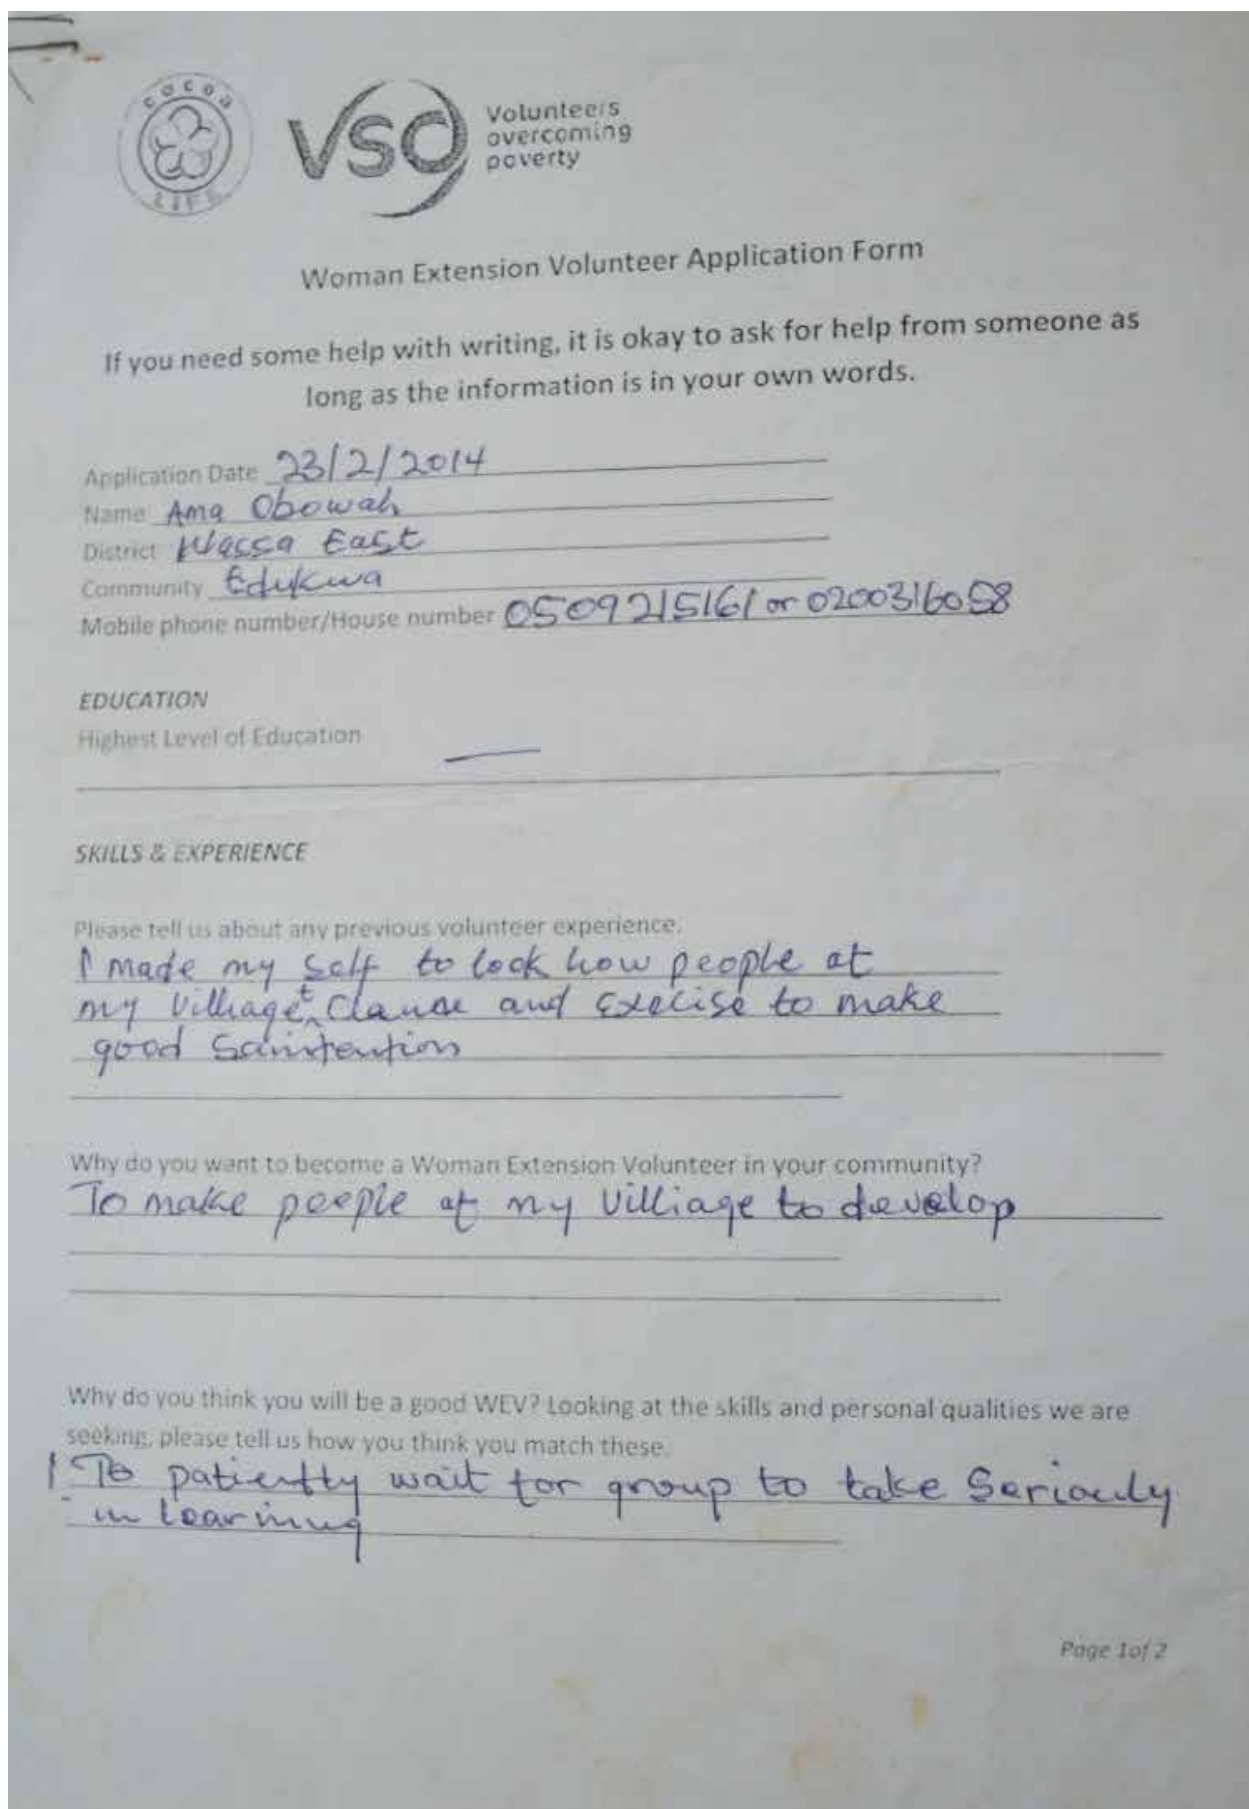 cocoa
LIFE
vso
Volunteers
overcoming
poverty
Woman Extension Volunteer Application Form
If you need some help with writing, it is okay to ask for help from someone as
long as the information is in your own words.
Application Date 23/2/2014
Name Ama Obowah
District Wassa East
Community Edukwa
Mobile phone number/House number 0509215161 or 0200316058
EDUCATION
Highest Level of Education
SKILLS & EXPERIENCE
Please tell us about any previous volunteer experience.
I made my self to look how people at
my Villiage and Execise to make
good
Why do you want to become a Woman Extension Volunteer in your community?
To make people at my Villiage to develop
Why do you think you will be a good WEV? Looking at the skills and personal qualities we are
seeking, please tell us how you think you match these.
To patiently wait for group to take
in
Page 1of 2